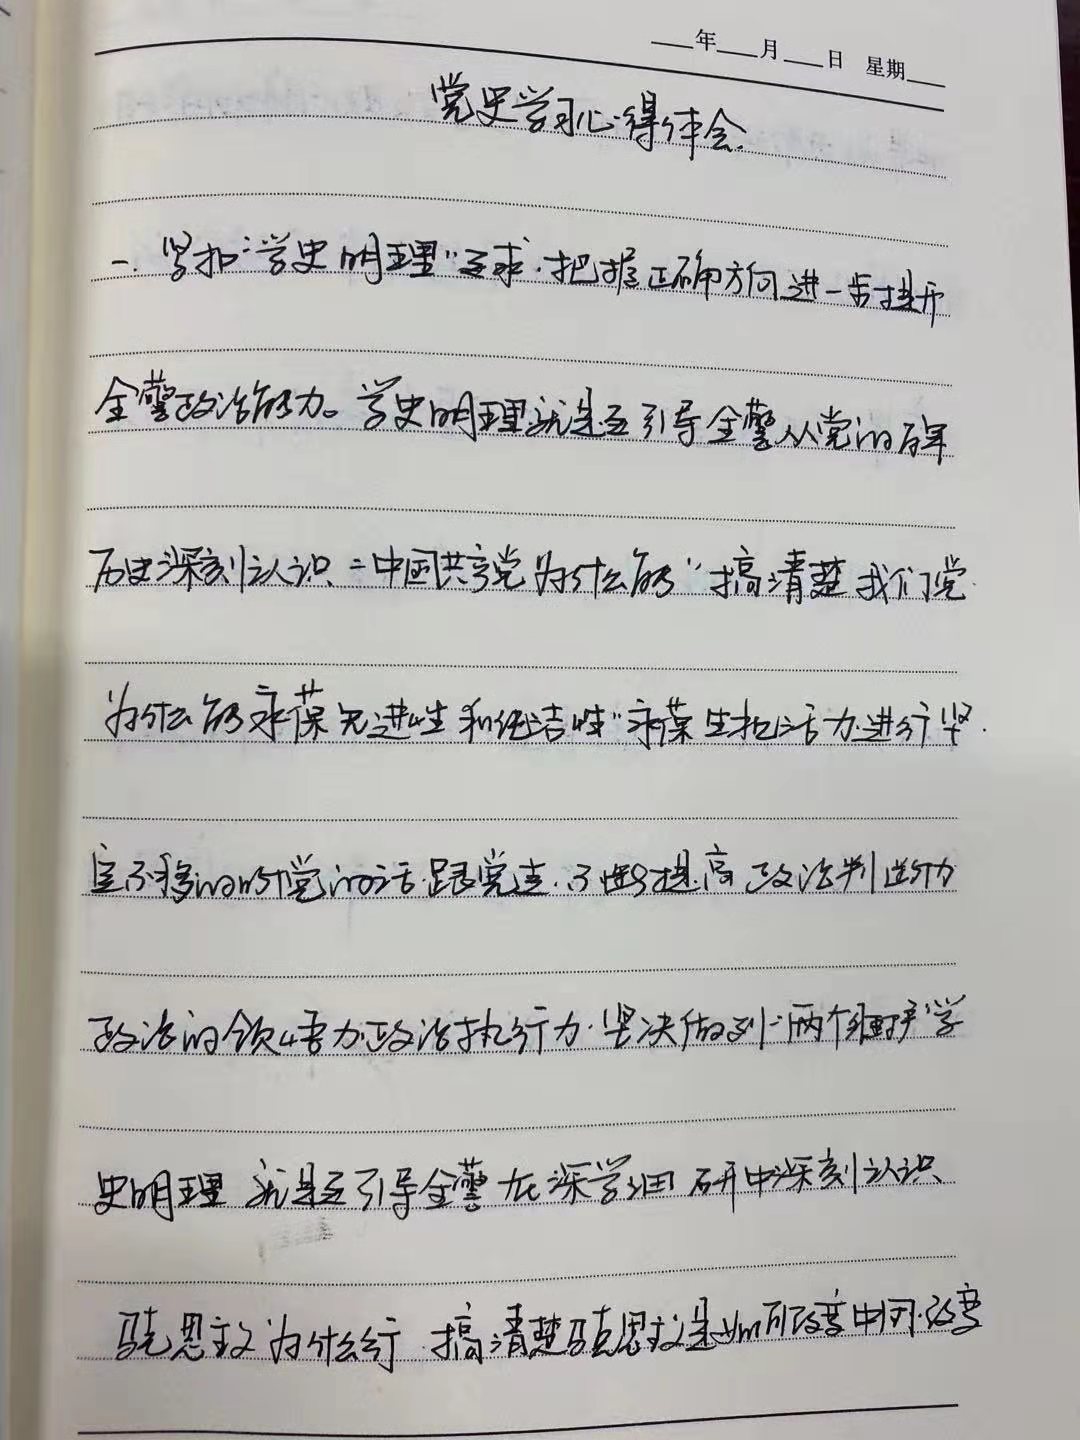 年 月 日 星期
党史学习心得体会.
一.紧扣“学史明理”要求.把握正确方向进一步提升
全警政治能力。学史明理就是要引导全警从党的百年
历史深刻认识“中国共产党为什么能”搞清楚我们党
为什么能永葆先进性和纯洁性”永葆生机活力.进行坚.
定不移的听党的话.跟党走.不断提高政治判断力
政治的领悟力.政治执行力.坚决做到“两个维护”学
史明理 就是要引导全警在深学细研中深刻认识
马克思主义为什么行.搞清楚马克思主义是如何改变中国.改变